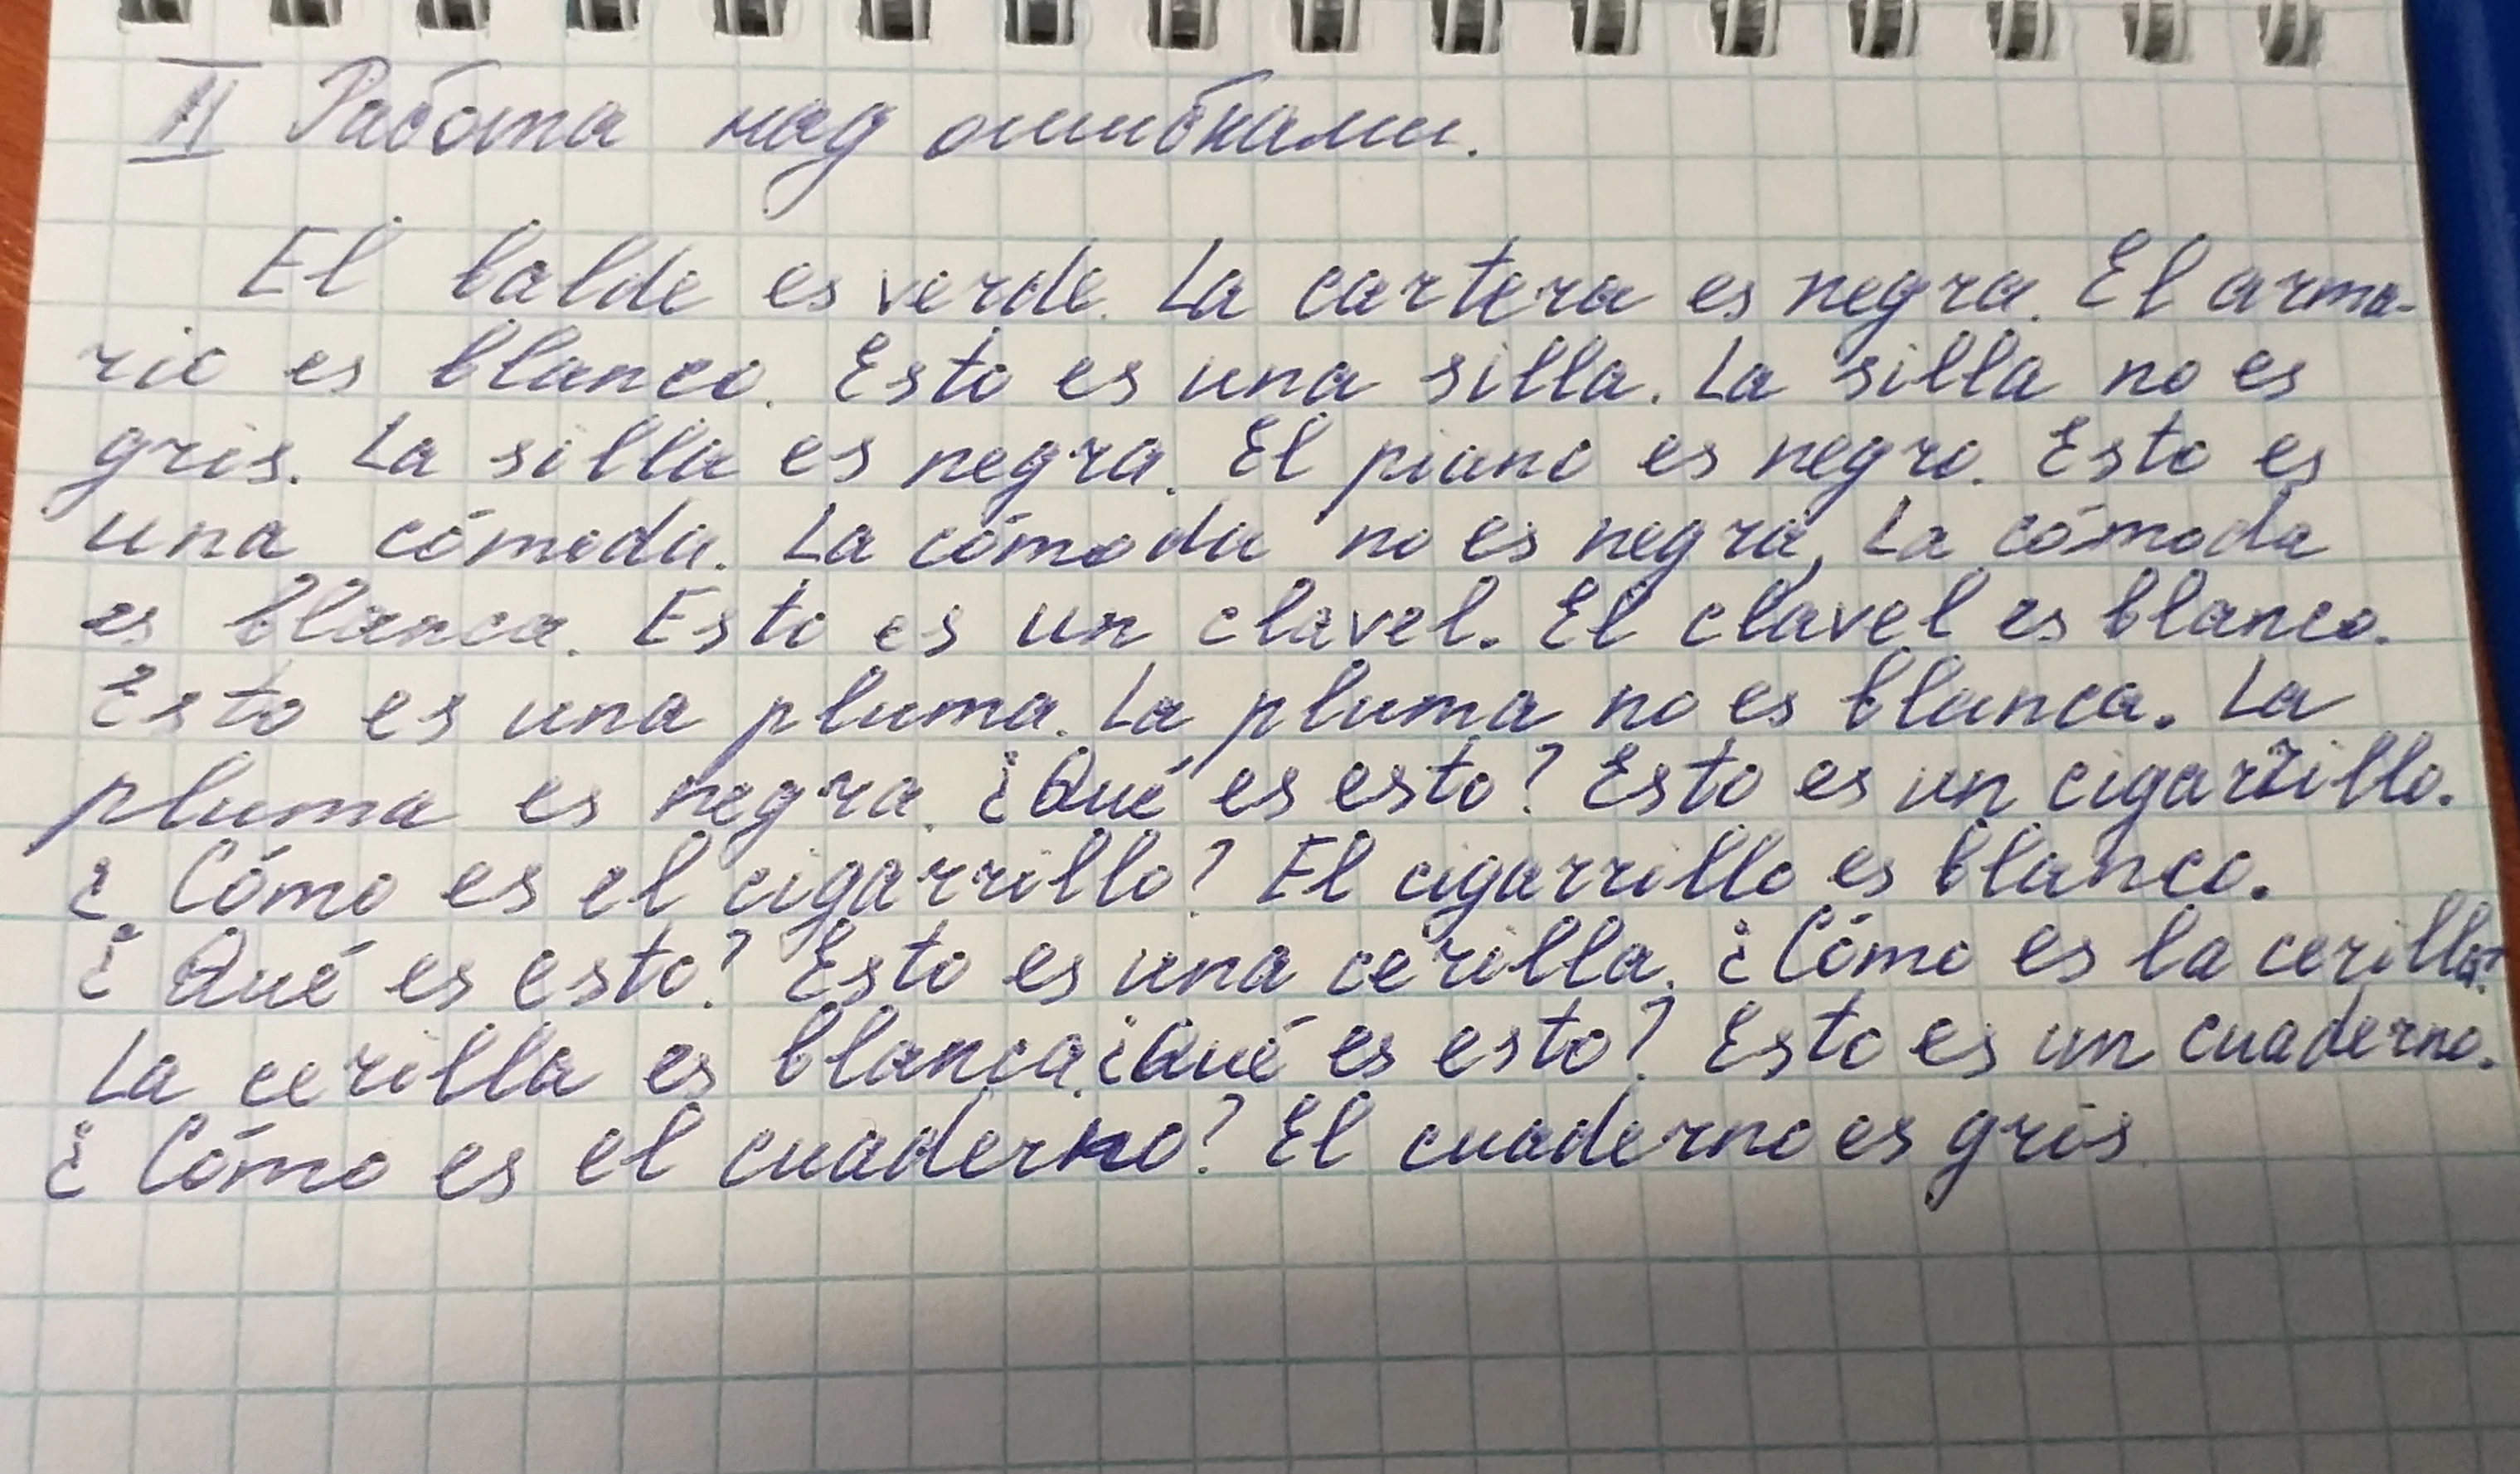 II Работа над ошибками.
El balde es verde. La cartera es negra. El arma-
rio es blanco. Esto es una silla. La silla no es
gris. La silla es negra. El piano es negro. Esto es
una cómoda. La cómoda no es negra, La cómoda
es blanca. Esto es un clavel. El clavel es blanco.
Esto es una pluma. La pluma no es blanca. La
pluma es negra. ¿Qué es esto? Esto es un cigarrillo.
¿Cómo es el cigarrillo? El cigarrillo es blanco.
¿Qué es esto? Esto es una cerilla. ¿Cómo es la cerilla?
La cerilla es blanca. ¿Qué es esto? Esto es un cuaderno.
¿Cómo es el cuaderno? El cuaderno es gris.